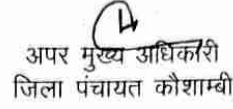 अपर मुख्य अधिकारी
जिला पंचायत कौशाम्बी